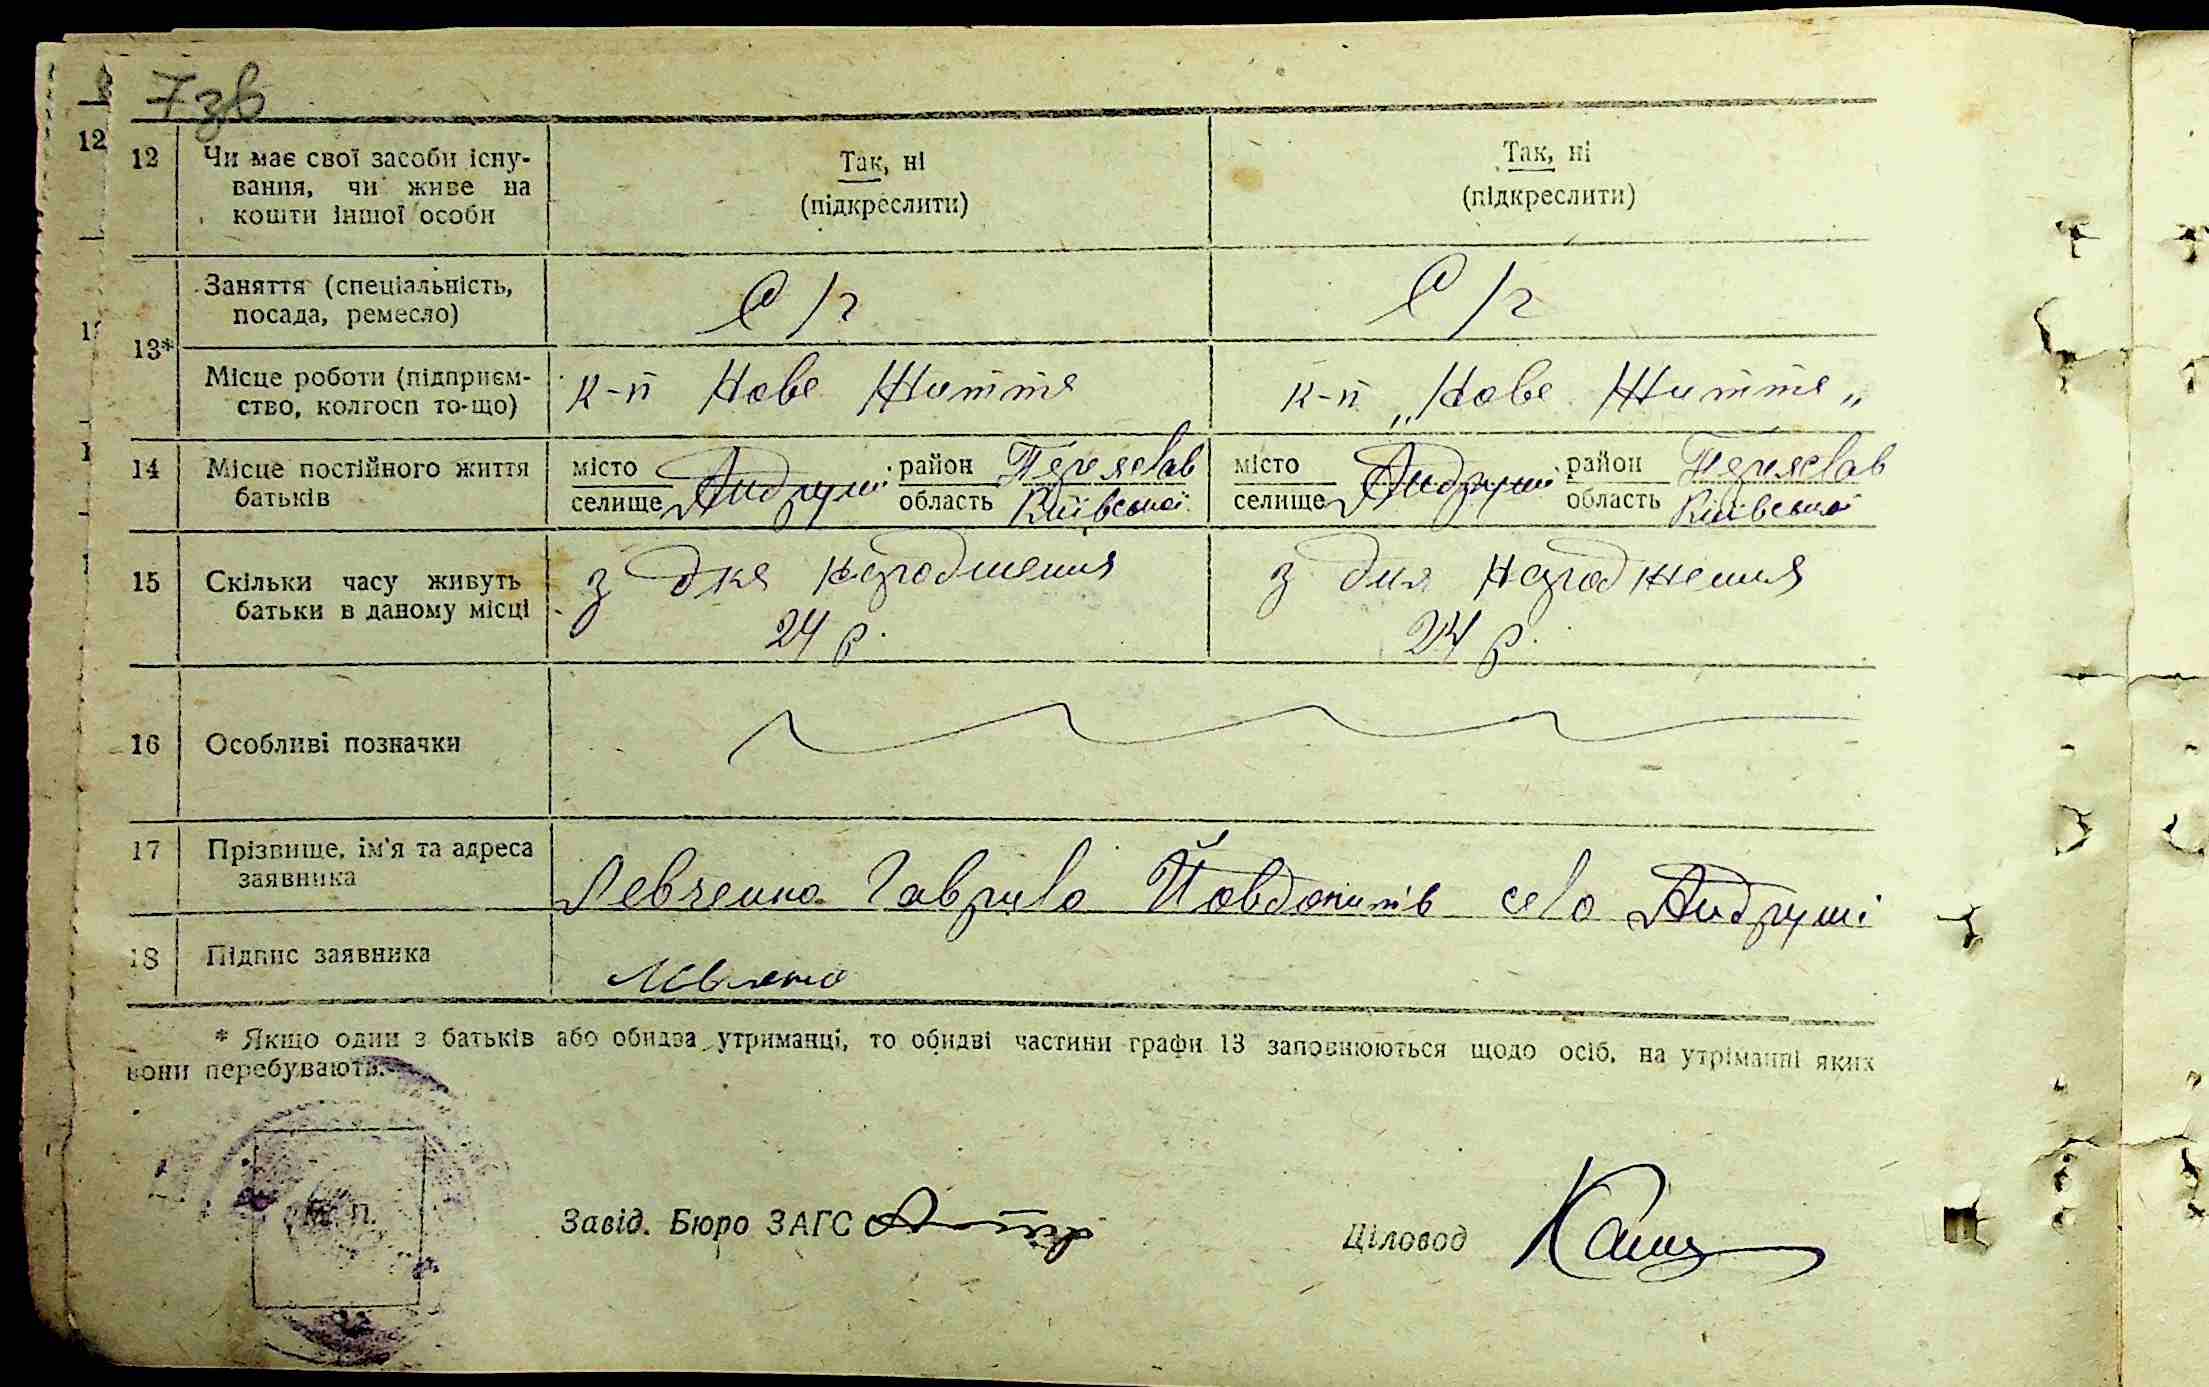 7зв
12
12 Чи має свої засоби існу-
вання, чи живе на
кошти іншої особи
Так, ні
(підкреслити)
Так, ні
(підкреслити)
13*
Заняття (спеціальність,
посада, ремесло)
С/г
С/г
Місце роботи (підприєм-
ство, колгосп то-що)
к-п Нове Життя
к-п „Нове Життя„
14 Місце постійного життя
батьків
місто
селище Андруші
район Переяслав
область Київської
місто
селище Андруші
район Переяслав
область Київської
15 Скільки часу живуть
батьки в даному місці
з дня народження
24 р.
з дня народження
24 р.
16 Особливі позначки
17 Прізвище, ім'я та адреса
заявника
Левченко Гаврило Йовдокимів село Андруші
18 Підпис заявника
Левченко
* Якщо один з батьків або обидва утриманці, то обидві частини графи 13 заповнюються щодо осіб, на утріманні яких
вони перебувають.
М. П.
Завід. Бюро ЗАГС
Діловод